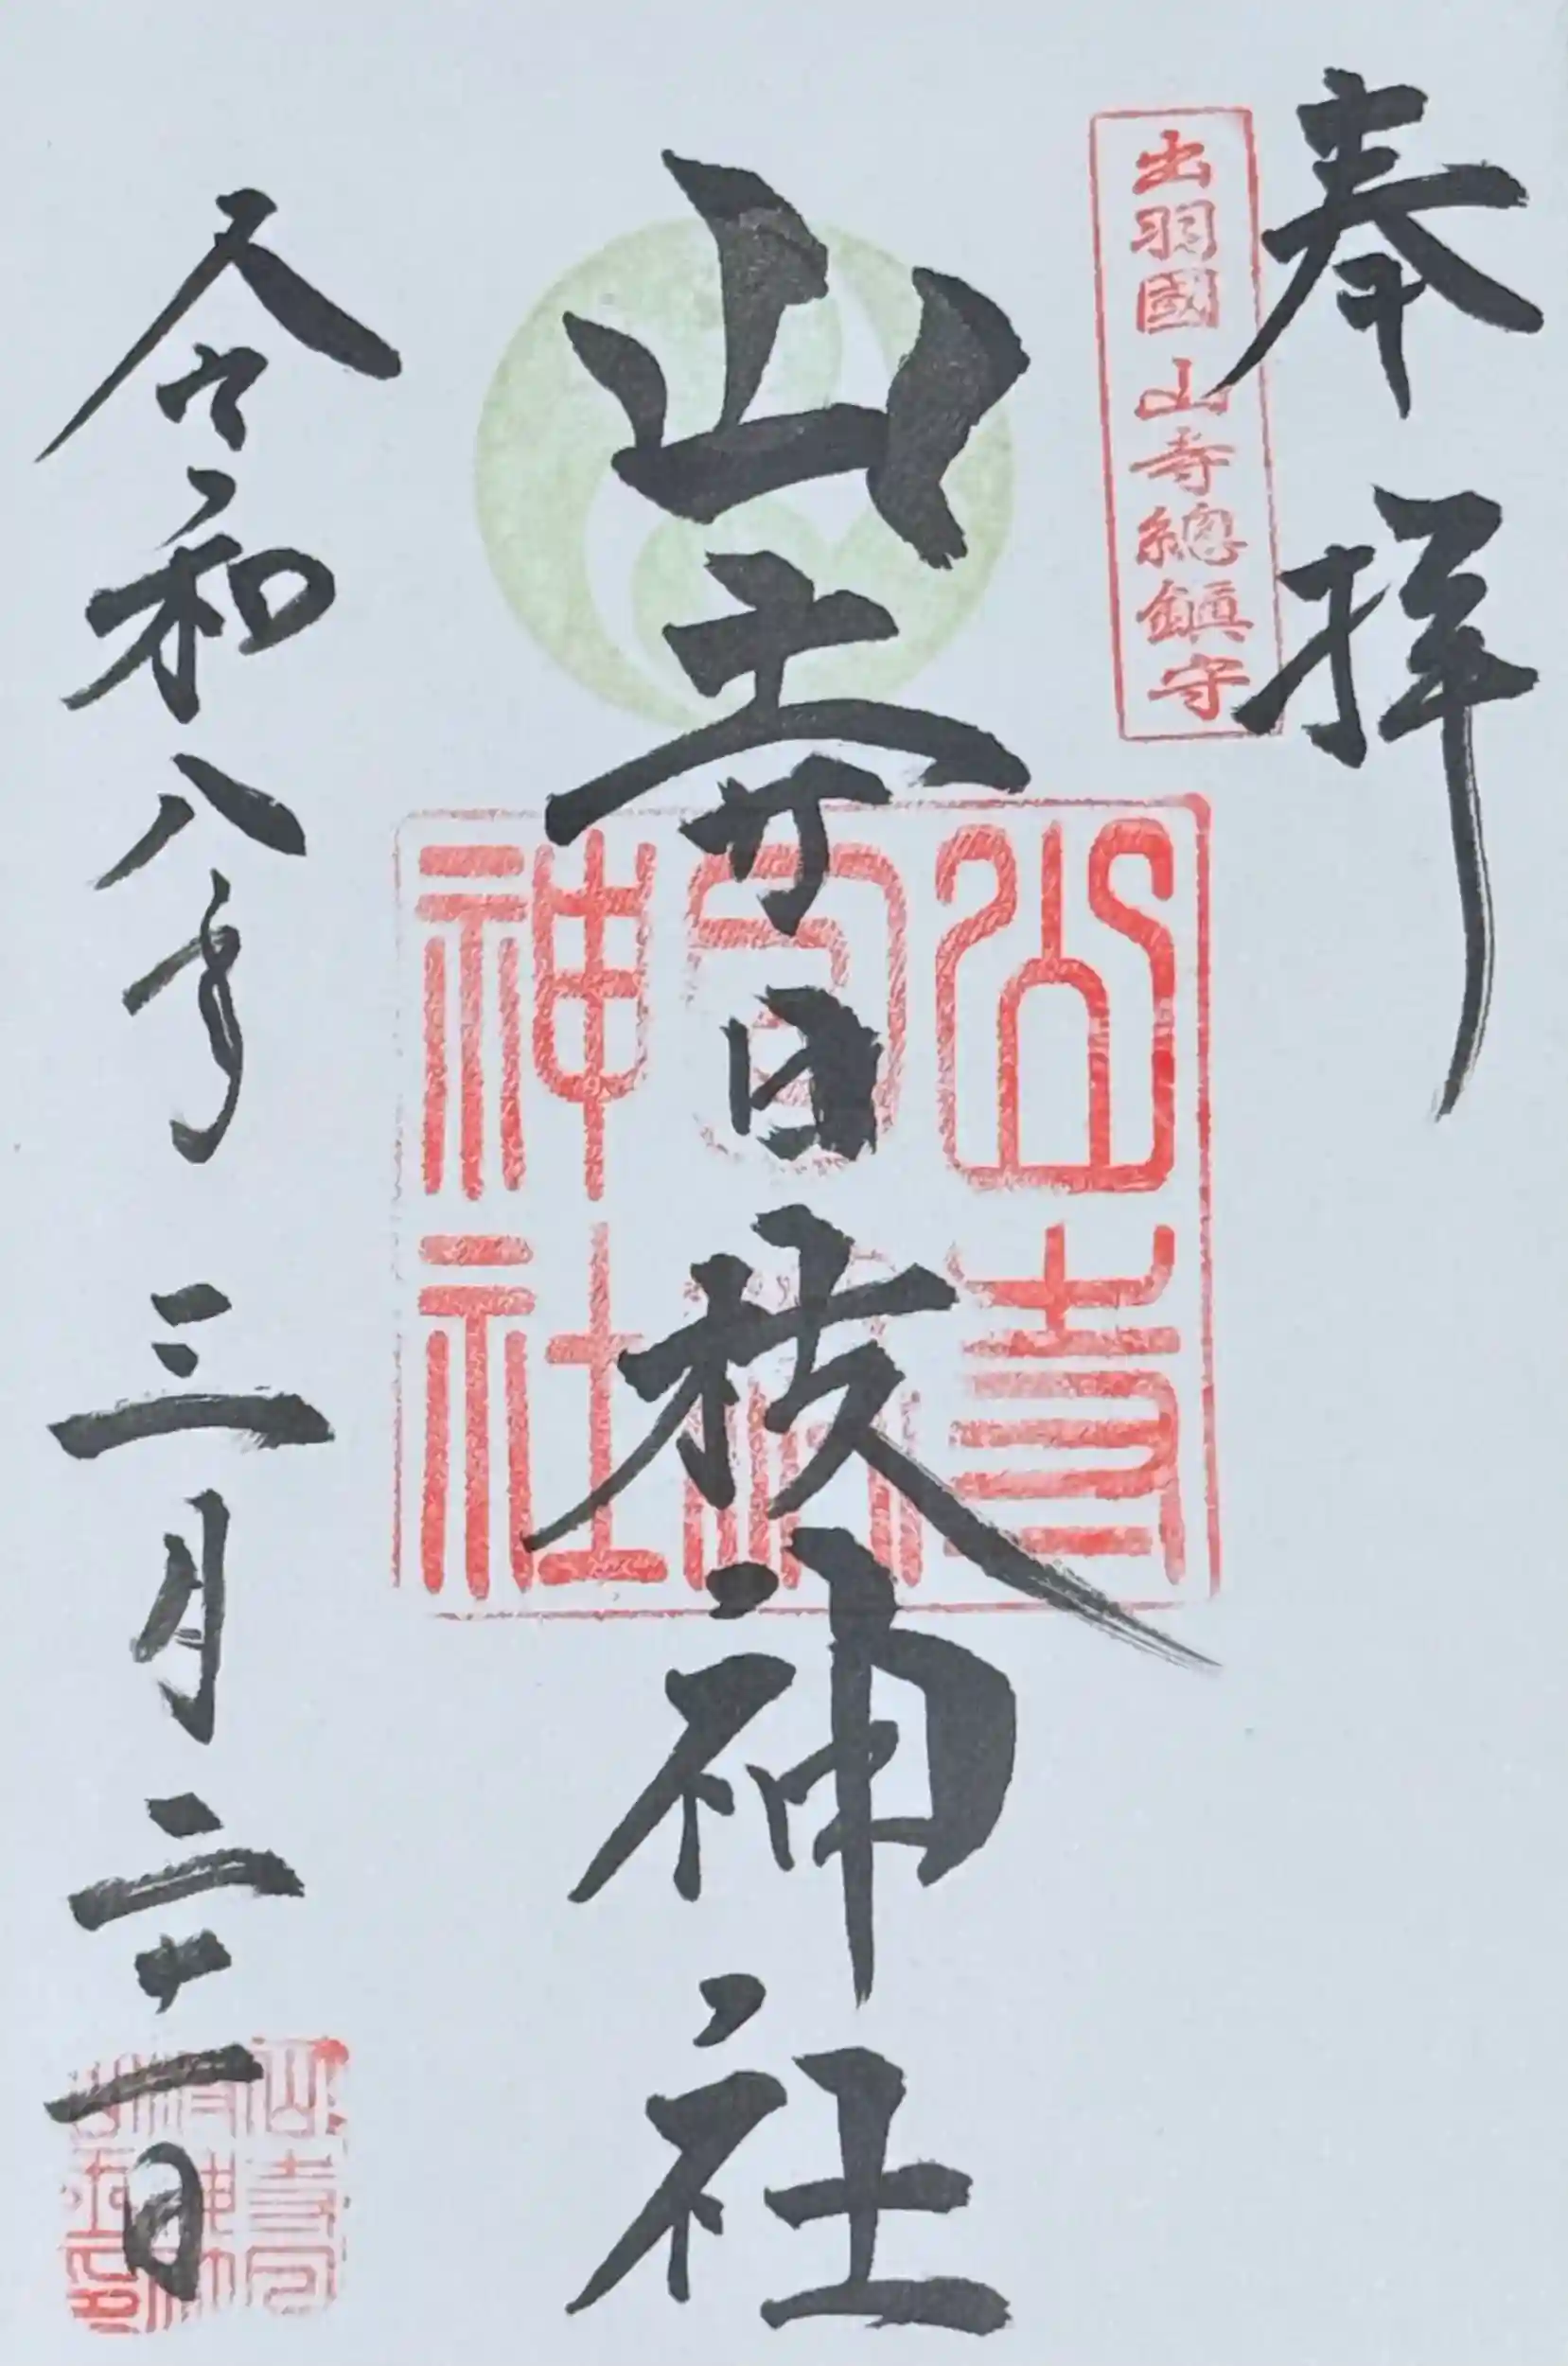 奉拝
出羽國 山寺總鎮守
山寺日枝神社
山寺日枝神社
令和八年 三月 二十一日